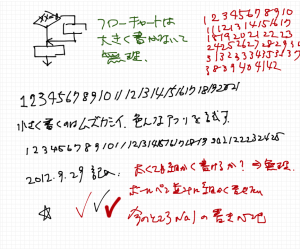 フローチャートは
大きく書かないと
無理.
1 2 3 4 5 6 7 8 9 10
11 12 13 14 15 16 17
18 19 20 21 22 23
24 25 26 27 28 29 30
31 32 33 34 35 36 37
38 39 40 41 42
1 2 3 4 5 6 7 8 9 10 11 12 13 14 15 16 17 18 19 20 21
小さく書くのはムズカシイ. 色んなペンを試す
1 2 3 4 5 6 7 8 9 10 11 12 13 14 15 16 17 18 19 20 21 22 23 24 25
2012.9.29 記
太くても細かく書けるか? ⇒ 無理.
ボールペン
今のところ No1 の書き心地